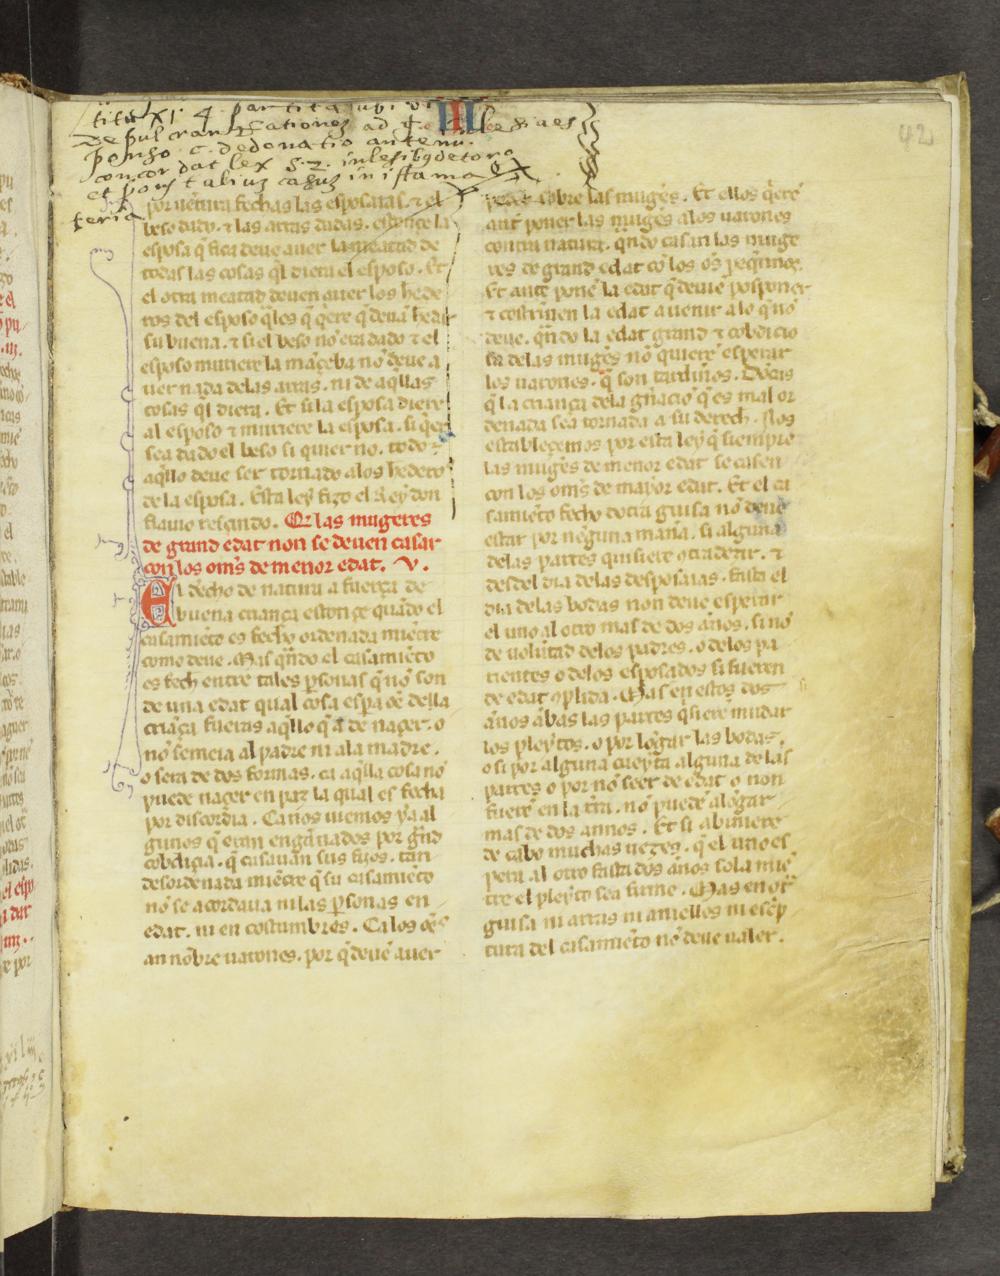 42
III
por uentura fechas las esposaias. ⁊ el
beso dado. ⁊ las arras dadas. estonçe la
esposa q̃ fica deue auer la meatad de
todas las cosas q̃l diera el esposo. Et
el otra meatad deuen auer los hede
ros del esposo q̃les q̃ q̃ere q̃ deuã hedar
su buena. ⁊ si el beso nõ era dado ⁊ el
esposo muriere la mãçeba nõ deue a
uer nada delas arras. ni de aq̃llas
cosas q̃l diera. Et si la esposa diere
al esposo ⁊ muriere la esposa. si q̃er
sea dado el beso si quier no. todo
aq̃llo deue ser tornado alos hedero
de la esposa. Esta ley fizo el Rey don
flauio resçindo. Q̃ las mugeres
de grand edat non se deuen casar
con los om̃s de menor edat. V.
El dr̃cho de natura a fuerça de
buena criança estonçe quãdo el
casamiẽto es fecho ordenada miẽtre
como deue. Mas q̃ndo el casamiẽto
es fech entre tales p̃sonas q̃ nõ son
de una edat qual cosa esparẽ della
criãça fueras aq̃llo q̃ a de naçer. o
nõ semeia al padre ni ala madre.
o sera de dos formas. ca aq̃lla cosa nõ
puede naçer en paz la qual es fecha
por discordia. Ca nos uiemos ya al
gunos q̃ eran engãnados por grãd
cobdiçia. q̃ casauan sus fijos. tan
desordenada miẽtre q̃ su casamiẽto
nõ se acordaua ni las p̃sonas en
edat. ni en costumbres. Ca los q̃
an nõbre uarones. por q̃ deuẽ auer
poder sobre las mugẽs. Et ellos q̃erẽ
ant̃ poner las mugẽs a los uarones
contra natura. q̃ndo casan las muge
res de grand edat cõ los om̃s peq̃nnos.
Et antẽ ponẽ la edat q̃ deuiẽ posponer
⁊ costrinen la edat a uenir a lo q̃ nõ
deue. q̃ndo la edat grand ⁊ cobdicio
sa delas mugẽs nõ quierẽ esperar
los uarones. q̃ son tardinos. Docas
q̃ la criança dela gñacio q̃ es mal or
denada sea tornada a su derech. Nos
establecemos por esta ley q̃ siempre
las mugẽs de menor edat se casen
con los om̃s de mayor edat. Et el ca
samiẽto fecho dotra guisa nõ deue
estar por neguna mañra. si alguna
delas partes quisiere otradezir. ⁊
desdel dia delas desposaias. fasta el
dia delas bodas non deue esperar
el uno al otro mas de dos años. si nõ
de volũtad delos padres. o delos pa
rientes o delos esposados si fueren
de edat cõplida. Mas en estos dos
años ãbas las partes q̃siere mudar
los pleytos. o por lõgar las bodas.
o si por alguna cueyta alguna de las
partes o por nõ seer de edat o non
fuerẽ en la tr̃ra. nõ puedẽ alõgar
mas de dos annos. Et si abiniere
de cabo muchas uezes. q̃ el uno es
pera al otro fasta dos años sola miẽ
tre el pleyto sea firme. Mas en otr̃
guisa ni arras ni aniellos ni escp̃
tura del casamiẽto nõ deue ualer.